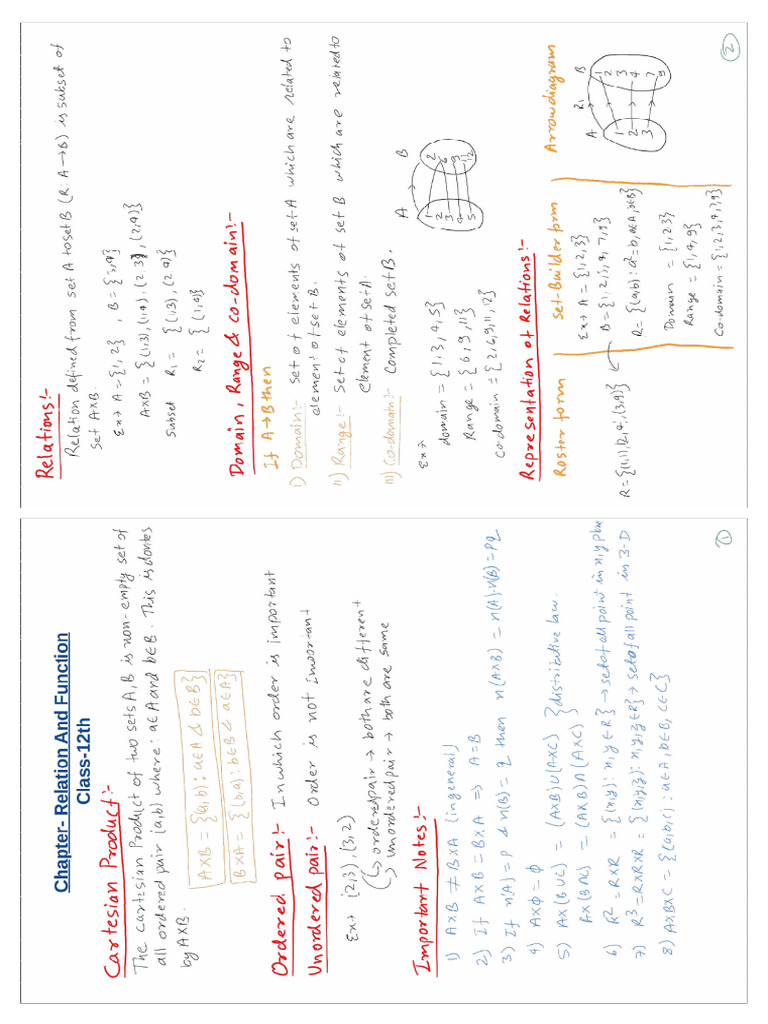 Chapter- Relation And Function
Class-12th
Cartesian Product:-
The cartesian Product of two sets A, B is non-empty set of
all ordered pair (a,b) where : a∈A and b∈B. This is dontes
by A×B.
A×B = {(a,b) : a∈A & b∈B}
B×A = {(b,a) : b∈B & a∈A}
Ordered pair:- In which order is important
Unordered pair:- Order is not important
Ex→ (2,3), (3,2)
ordered pair → both are different
unordered pair → both are same
Important Notes:-
1) A×B ≠ B×A (in general)
2) If A×B = B×A ⇒ A=B
3) If n(A) = p & n(B) = q then n(A×B) = n(A)·n(B) = pq
4) A×ϕ = ϕ
5) A×(B∪C) = (A×B)∪(A×C) } distributive law.
A×(B∩C) = (A×B)∩(A×C)
6) R² = R×R = {(x,y) : x,y∈R} → set of all point in x,y plane
7) R³ = R×R×R = {(x,y,z) : x,y,z∈R} → set of all point in 3-D
8) A×B×C = {(a,b,c) : a∈A, b∈B, c∈C}
1
Relations:-
Relation defined from set A to set B (R: A→B) is subset of
set A×B.
Ex→ A = {1,2}, B = {3,4}
A×B = {(1,3), (1,4), (2,3), (2,4)}
subset R₁ = {(1,3), (2,4)}
R₂ = {(1,4)}
Domain, Range & co-domain:-
If A→B then
i) Domain:- Set of elements of set A which are related to
element of set B.
ii) Range:- Set of elements of set B which are related to
element of set A.
iii) Co-domain:- Completed set B.
Ex→
domain = {1,3,4,5}
Range = {6,9,11}
co-domain = {2,6,9,11,12}
A B
1 2 3 4 5
2 6 9
12
Representation of Relations:-
Roster form Set-Builder form Arrow diagram
Ex→ A = {1,2,3}
B = {1,2,3,4,7,9}
R = {(a,b) : a²=b, a∈A, b∈B}
R = {(1,1), (2,4), (3,9)}
Domain = {1,2,3}
Range = {1,4,9}
Co-domain = {1,2,3,4,7,9}
A R₁ B
1 2 3
1 2 3 4 7 9
2